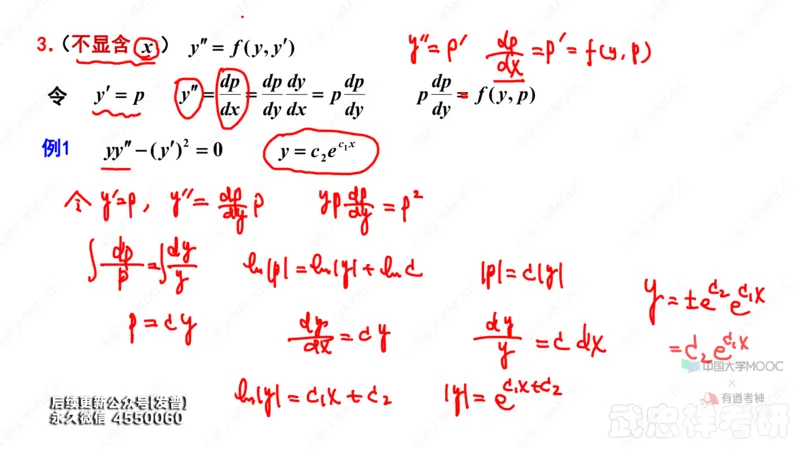 3.（不显含 x） y″ = f(y, y′) y″ = p′ dp/dx = p′ = f(y, p)
令 y′ = p y″ = dp/dx = dp/dy dy/dx = p dp/dy p dp/dy = f(y, p)
例1 yy″ − (y′)² = 0 y = c₂e^{c₁x}
令 y′=p, y″ = dp/dy p yp dp/dy = p²
∫ dp/p = ∫ dy/y ln|p| = ln|y| + ln c |p| = c|y|
y = ±e^{c₂} e^{c₁x}
p = cy dy/dx = cy dy/y = c dx
= c₂ e^{c₁x}
中国大学MOOC
×
有道考神
ln|y| = c₁x + c₂ |y| = e^{c₁x+c₂}
后续更新公众号[发普]
永久微信 4550060
武忠祥考研